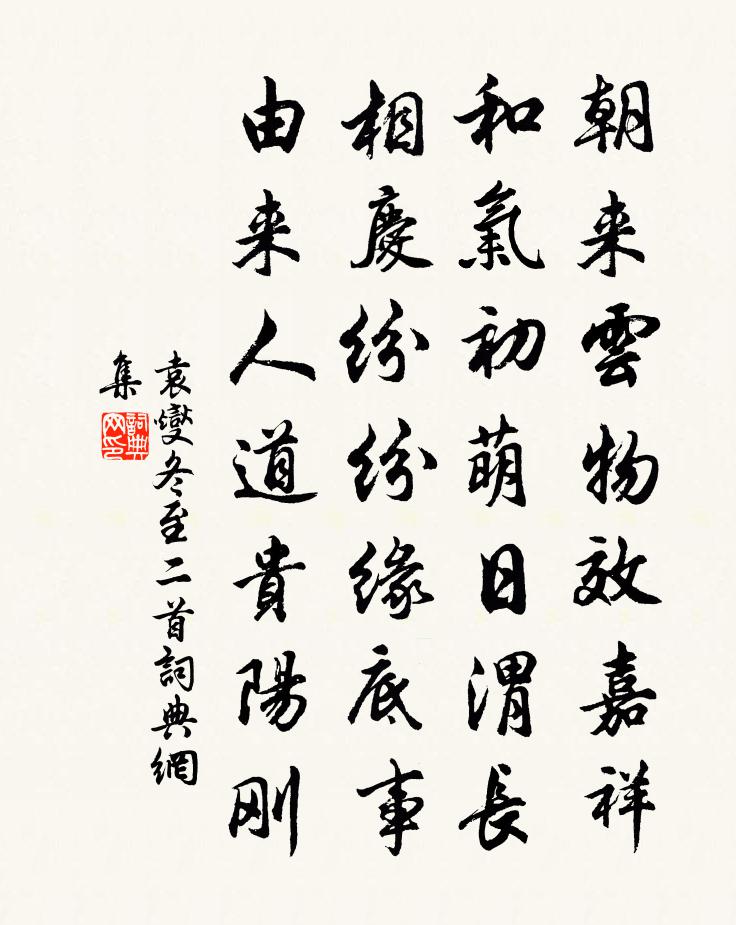 朝来雲物效嘉祥
和氣初萌日渭長
相慶紛紛緣底事
由来人道貴陽刚
袁燮冬至二首詞典網
集
詞典网印